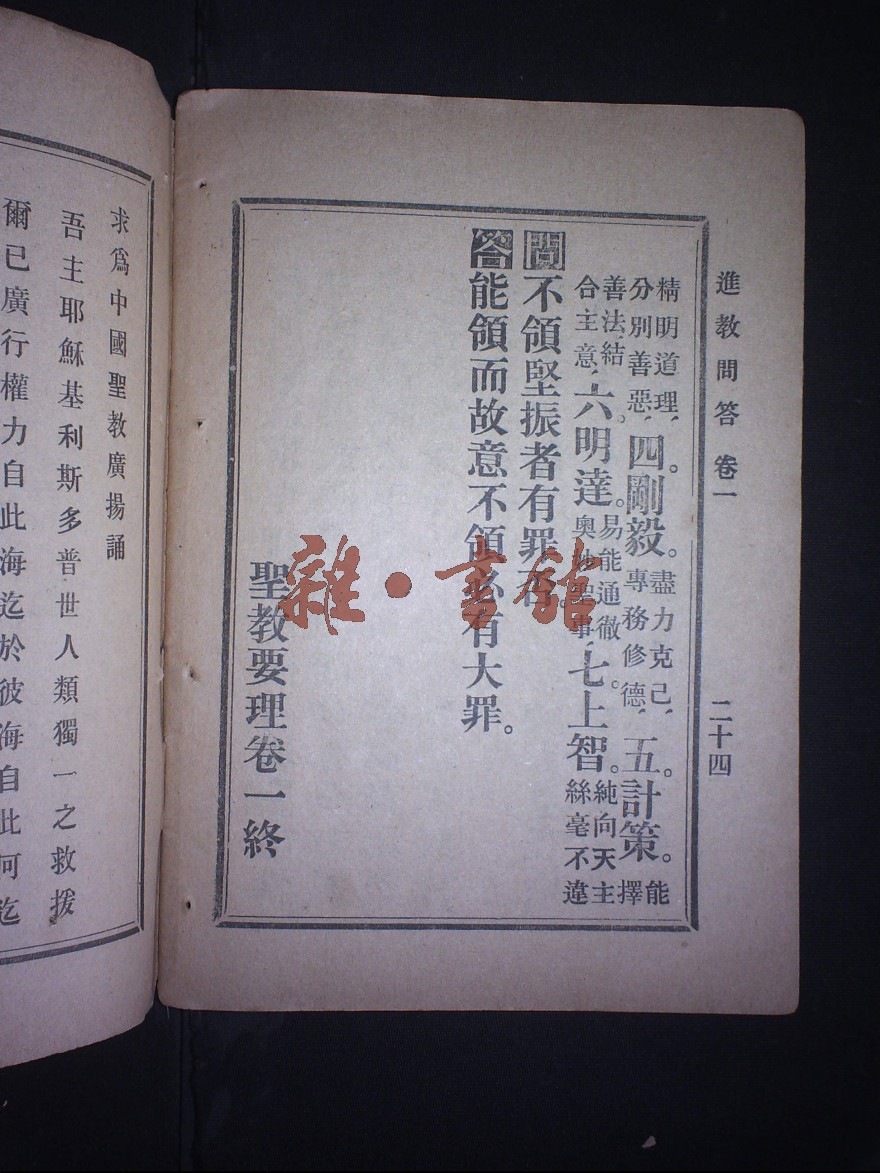 進教問答 卷一 二十四
精明道理、分別善惡、四。剛毅。盡力克己、專務修德、五。計策。能擇
善法、結合主意、六。明達。易能通徹奧妙聖事、七。上智。純向天主絲毫不違
問不領堅振者有罪否。
答能領而故意不領必有大罪。
聖教要理卷一終
求爲中國聖教廣揚誦
吾主耶穌基利斯多普世人類獨一之救援
爾已廣行權力自此海迄於彼海自此河迄
雜·書館